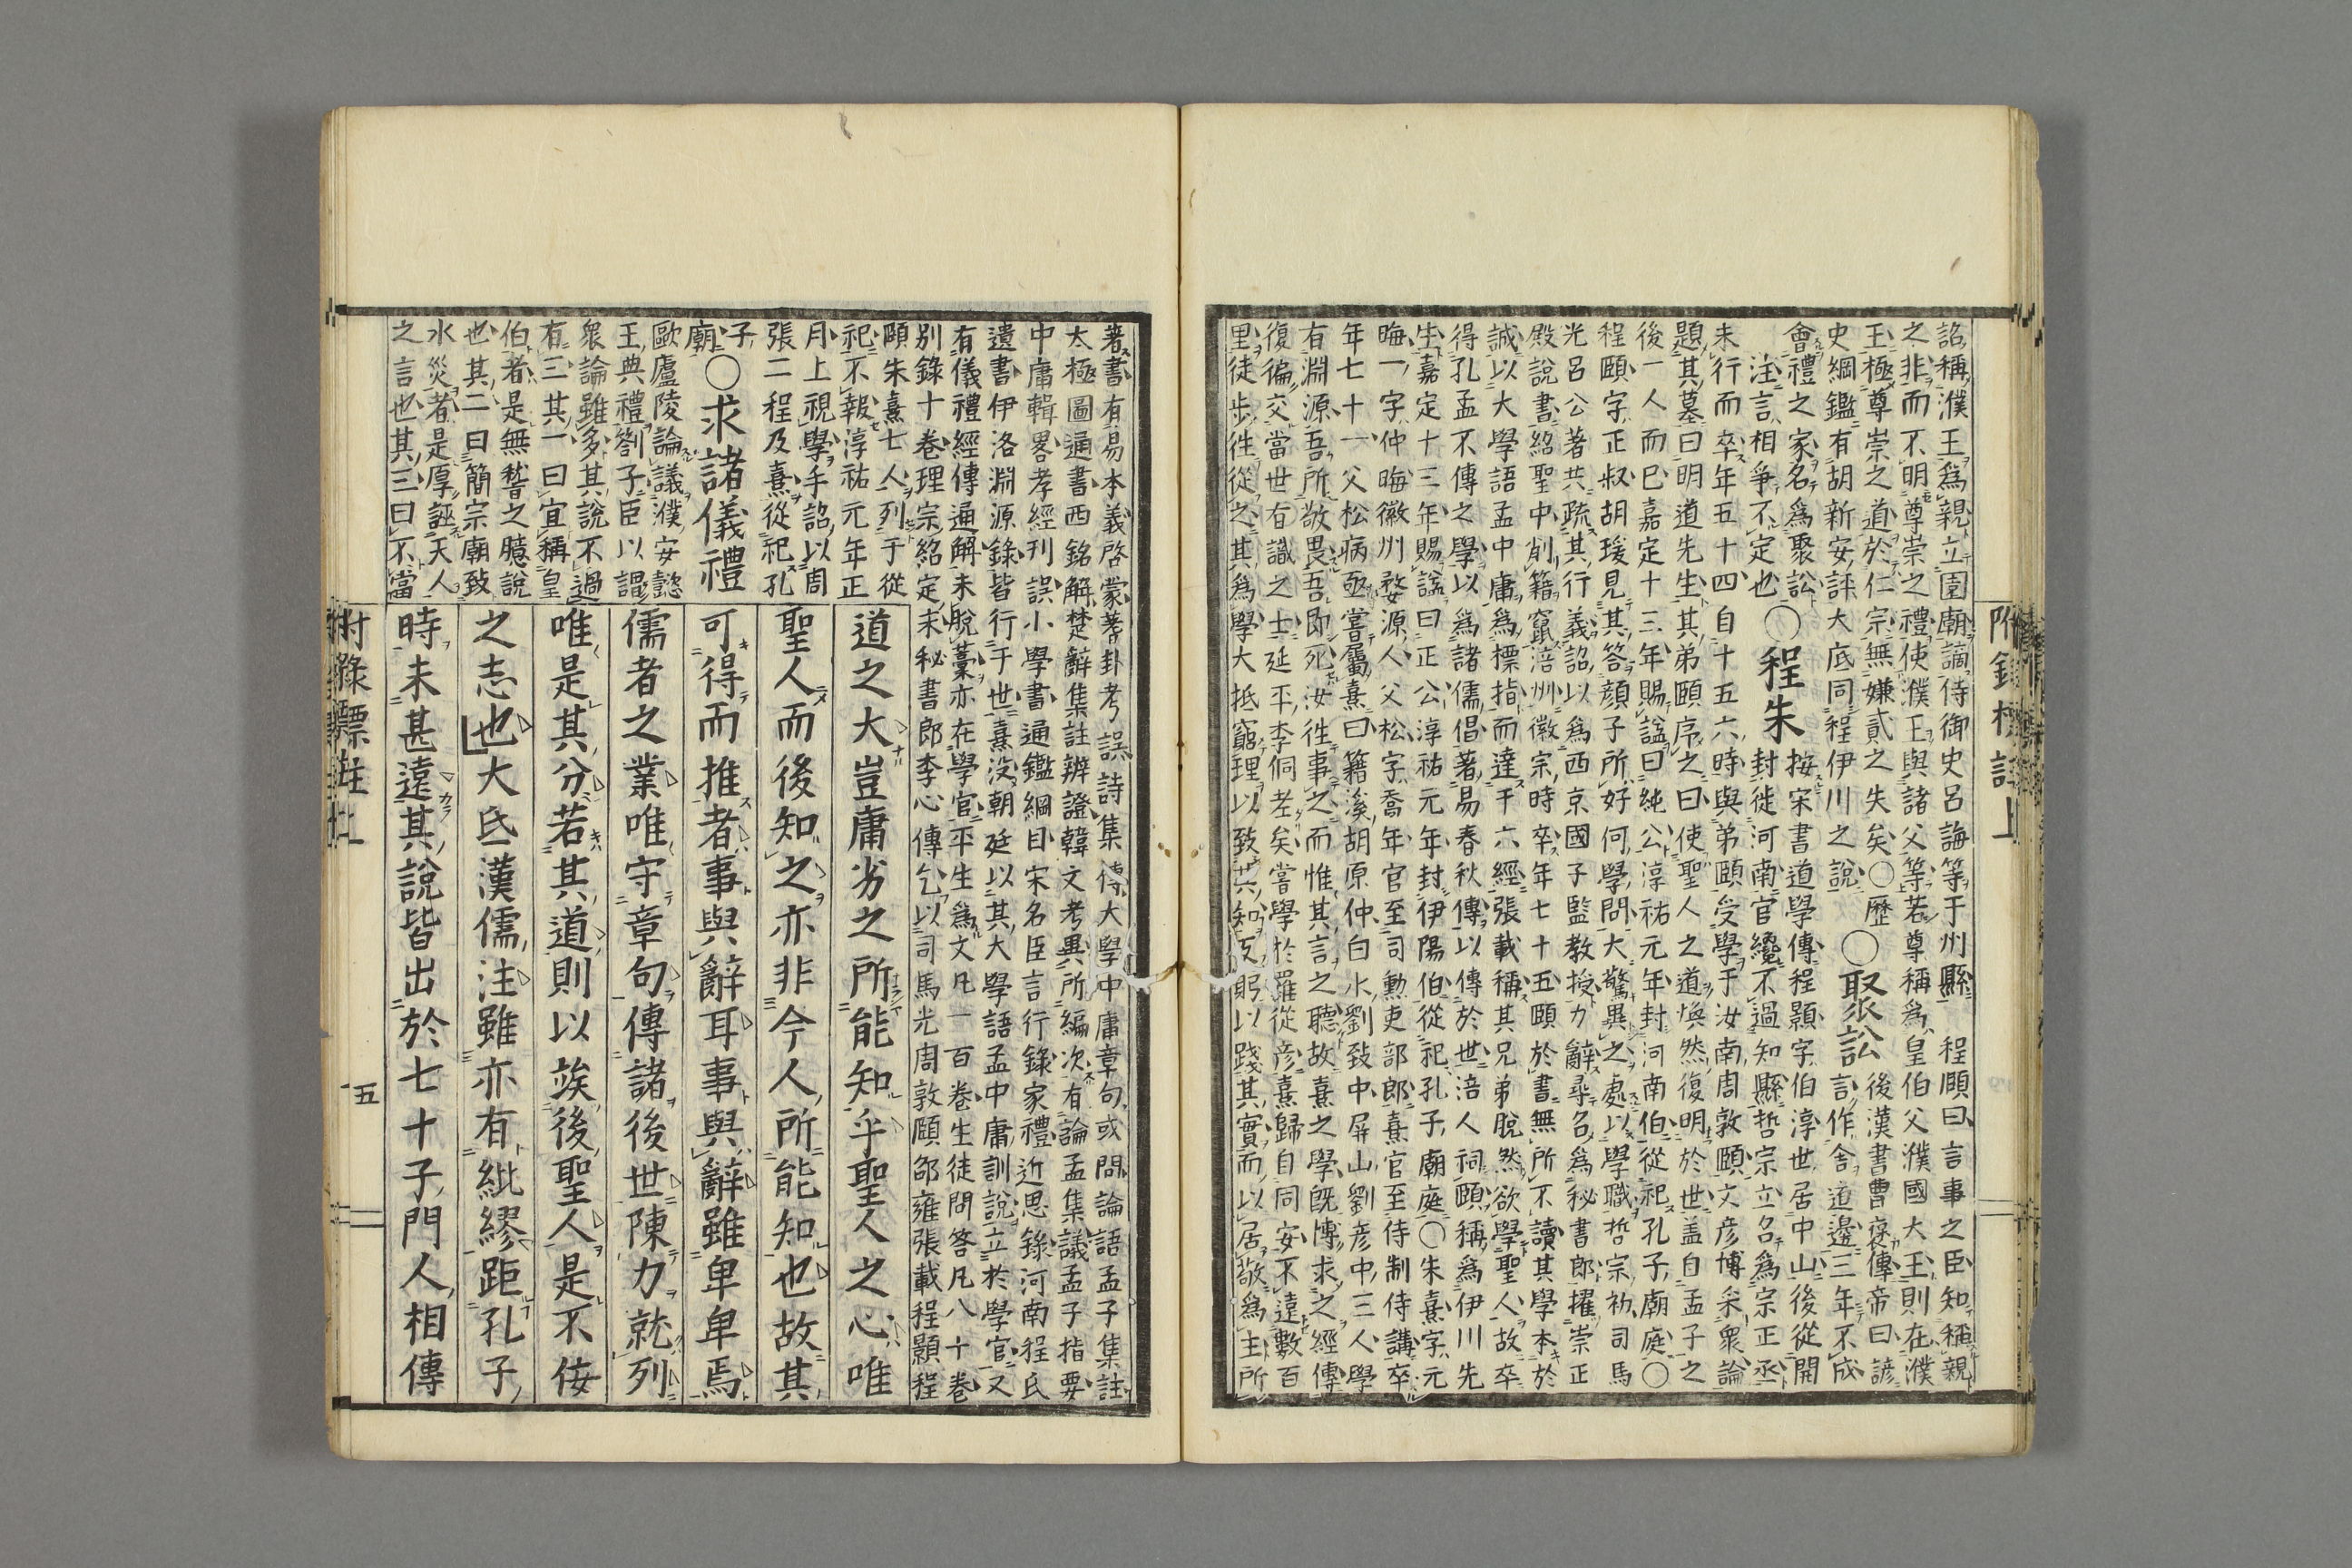 詔稱濮王爲親立園廟謫侍御史呂誨等于州縣　程頤曰言事之臣知稱親
之非而不明尊崇之禮使濮王與諸父等若尊稱爲皇伯父濮國大王則在濮
王極尊崇之道於仁宗無嫌貳之失矣○歷
史綱鑑有胡新安評大底同程伊川之說
○聚訟
後漢書曹褒傳帝曰諺
言作舍道邊三年不成
會禮之家名爲聚訟
注言相爭不定也
○程朱
按宋書道學傳程顥字伯淳世居中山後從開
封徙河南官纔不過知縣哲宗立召爲宗正丞
未行而卒年五十四自十五六時與弟頤受學于汝南周敦頤文彦博采衆論
題其墓曰明道先生其弟頤序之曰使聖人之道煥然復明於世盖自孟子之
後一人而已嘉定十三年賜謚曰純公淳祐元年封河南伯從祀孔子廟庭○
程頤字正叔胡瑗見其答顔子所好何學問大驚異之處以學職哲宗初司馬
光呂公著共疏其行義詔以爲西京國子監教授力辭尋召爲秘書郎擢崇正
殿說書紹聖中削籍竄涪州徽宗時卒年七十五頤於書無所不讀其學本於
誠以大學語孟中庸爲標指而達于六經張載稱其兄弟脫然欲學聖人故卒
得孔孟不傳之學以爲諸儒倡著易春秋傳以傳於世涪人祠頤稱爲伊川先
生嘉定十三年賜謚曰正公淳祐元年封伊陽伯從祀孔子廟庭○朱熹字元
晦一字仲晦徽州婺源人父松字喬年官至司勲吏部郎熹官至侍制侍講卒
年七十一父松病亟嘗屬熹曰籍溪胡原仲白水劉致中屏山劉彦中三人學
有淵源吾所敬畏吾即死汝徃事之而惟其言之聽故熹之學旣博求之經傳
復徧交當世有識之士延平李侗老矣嘗學於羅從彦熹歸自同安不遠數百
里徒步徃從之其爲學大抵窮理以致其知反躬以踐其實而以居敬爲主所
附錄標註上
著書有易本義啓蒙蓍卦考誤詩集傳大學中庸章句或問論語孟子集註
太極圖通書西銘解楚辭集註辨證韓文考異所編次有論孟集議孟子指要
中庸輯畧孝經刊誤小學書通鑑綱目宋名臣言行錄家禮近思錄河南程氏
遺書伊洛淵源錄皆行于世熹没朝廷以其大學語孟中庸訓說立於學官又
有儀禮經傳通解未脫藁亦在學官平生爲文凡一百卷生徒問答凡八十卷
別錄十卷理宗紹定末秘書郎李心傳乞以司馬光周敦頤邵雍張載程顥程
頤朱熹七人列于從
祀不報淳祐元年正
月上視學手詔以周
張二程及熹從祀孔
子
廟
○求諸儀禮
歐盧陵論議濮安懿
王典禮劄子臣以謂
衆論雖多其說不過
有三其一曰宜稱皇
伯者是無稽之臆說
也其二曰簡宗廟致
水災者是厚誣天人
之言也其三曰不當
道之大豈庸劣之所能知乎聖人之心唯
聖人而後知之亦非今人所能知也故其
可得而推者事與辭耳事與辭雖卑卑焉
儒者之業唯守章句傳諸後世陳力就列
唯是其分若其道則以竢後聖人是不佞
之志也大氐漢儒注雖亦有紕繆距孔子
時未甚遠其說皆出於七十子門人相傳
附錄標註上
五